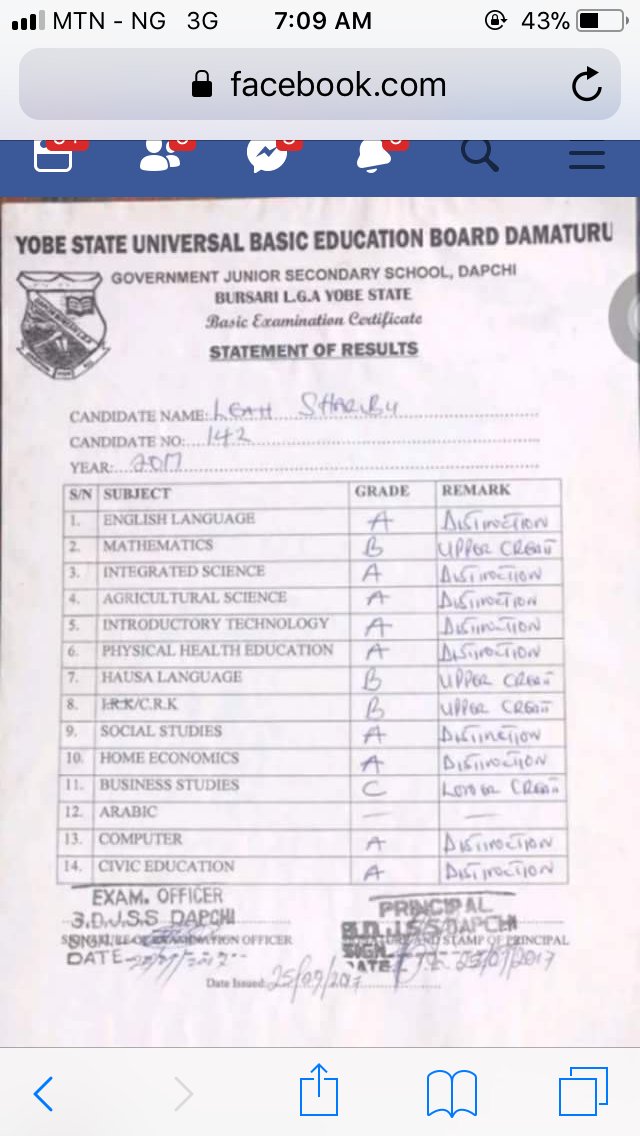 MTN - NG 3G 7:09 AM 43%
facebook.com
YOBE STATE UNIVERSAL BASIC EDUCATION BOARD DAMATURU
GOVERNMENT JUNIOR SECONDARY SCHOOL, DAPCHI
BURSARI L.G.A YOBE STATE
Basic Examination Certificate
STATEMENT OF RESULTS
CANDIDATE NAME: LEAH SHARIBU
CANDIDATE NO: 142
YEAR: 2017
S/N SUBJECT GRADE REMARK
1. ENGLISH LANGUAGE A DISTINCTION
2. MATHEMATICS B UPPER CREDIT
3. INTEGRATED SCIENCE A DISTINCTION
4. AGRICULTURAL SCIENCE A DISTINCTION
5. INTRODUCTORY TECHNOLOGY A DISTINCTION
6. PHYSICAL HEALTH EDUCATION A DISTINCTION
7. HAUSA LANGUAGE B UPPER CREDIT
8. I.R.K/C.R.K B UPPER CREDIT
9. SOCIAL STUDIES A DISTINCTION
10. HOME ECONOMICS A DISTINCTION
11. BUSINESS STUDIES C LOWER CREDIT
12. ARABIC — —
13. COMPUTER A DISTINCTION
14. CIVIC EDUCATION A DISTINCTION
EXAM. OFFICER PRINCIPAL
DAPCHI DAPCHI
OFFICER AND STAMP OF PRINCIPAL
DATE
Date Issued: 25/09/2017